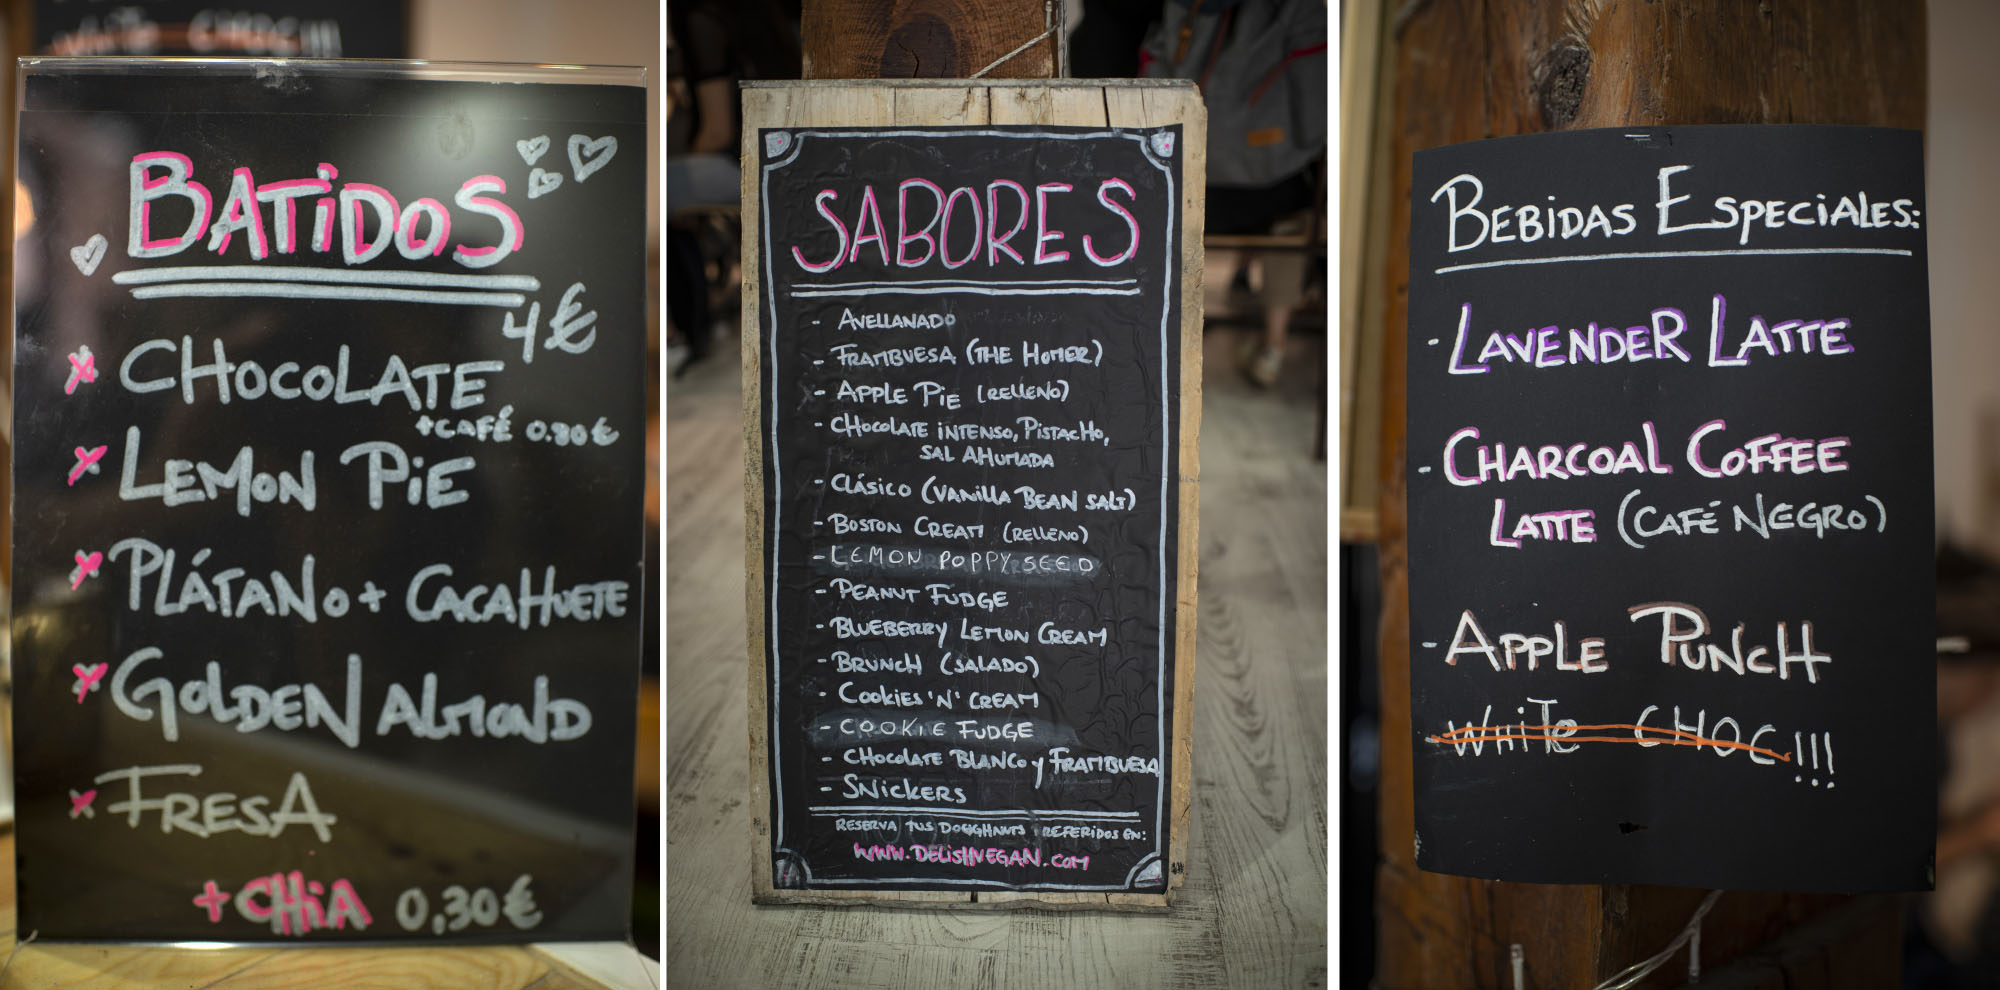 BATIDOS
4€
CHOCOLATE
+CAFÉ 0.30€
LEMON PIE
PLÁTANO + CACAHUETE
GOLDEN ALMOND
FRESA
+CHIA 0,30€
SABORES
- AVELLANADO
- FRAMBUESA (THE HOMER)
- APPLE PIE (RELLENO)
- CHOCOLATE INTENSO, PISTACHO,
SAL AHUMADA
- CLÁSICO (VANILLA BEAN SALT)
- BOSTON CREAM (RELLENO)
- LEMON POPPY SEED
- PEANUT FUDGE
- BLUEBERRY LEMON CREAM
- BRUNCH (SALADO)
- COOKIES 'N' CREAM
- COOKIE FUDGE
- CHOCOLATE BLANCO y FRAMBUESA
- SNICKERS
RESERVA TUS DOUGHNUTS PREFERIDOS EN:
WWW.DELISHVEGAN.COM
BEBIDAS ESPECIALES:
- LAVENDER LATTE
- CHARCOAL COFFEE
LATTE (CAFÉ NEGRO)
- APPLE PUNCH
- WHITE CHOC!!!